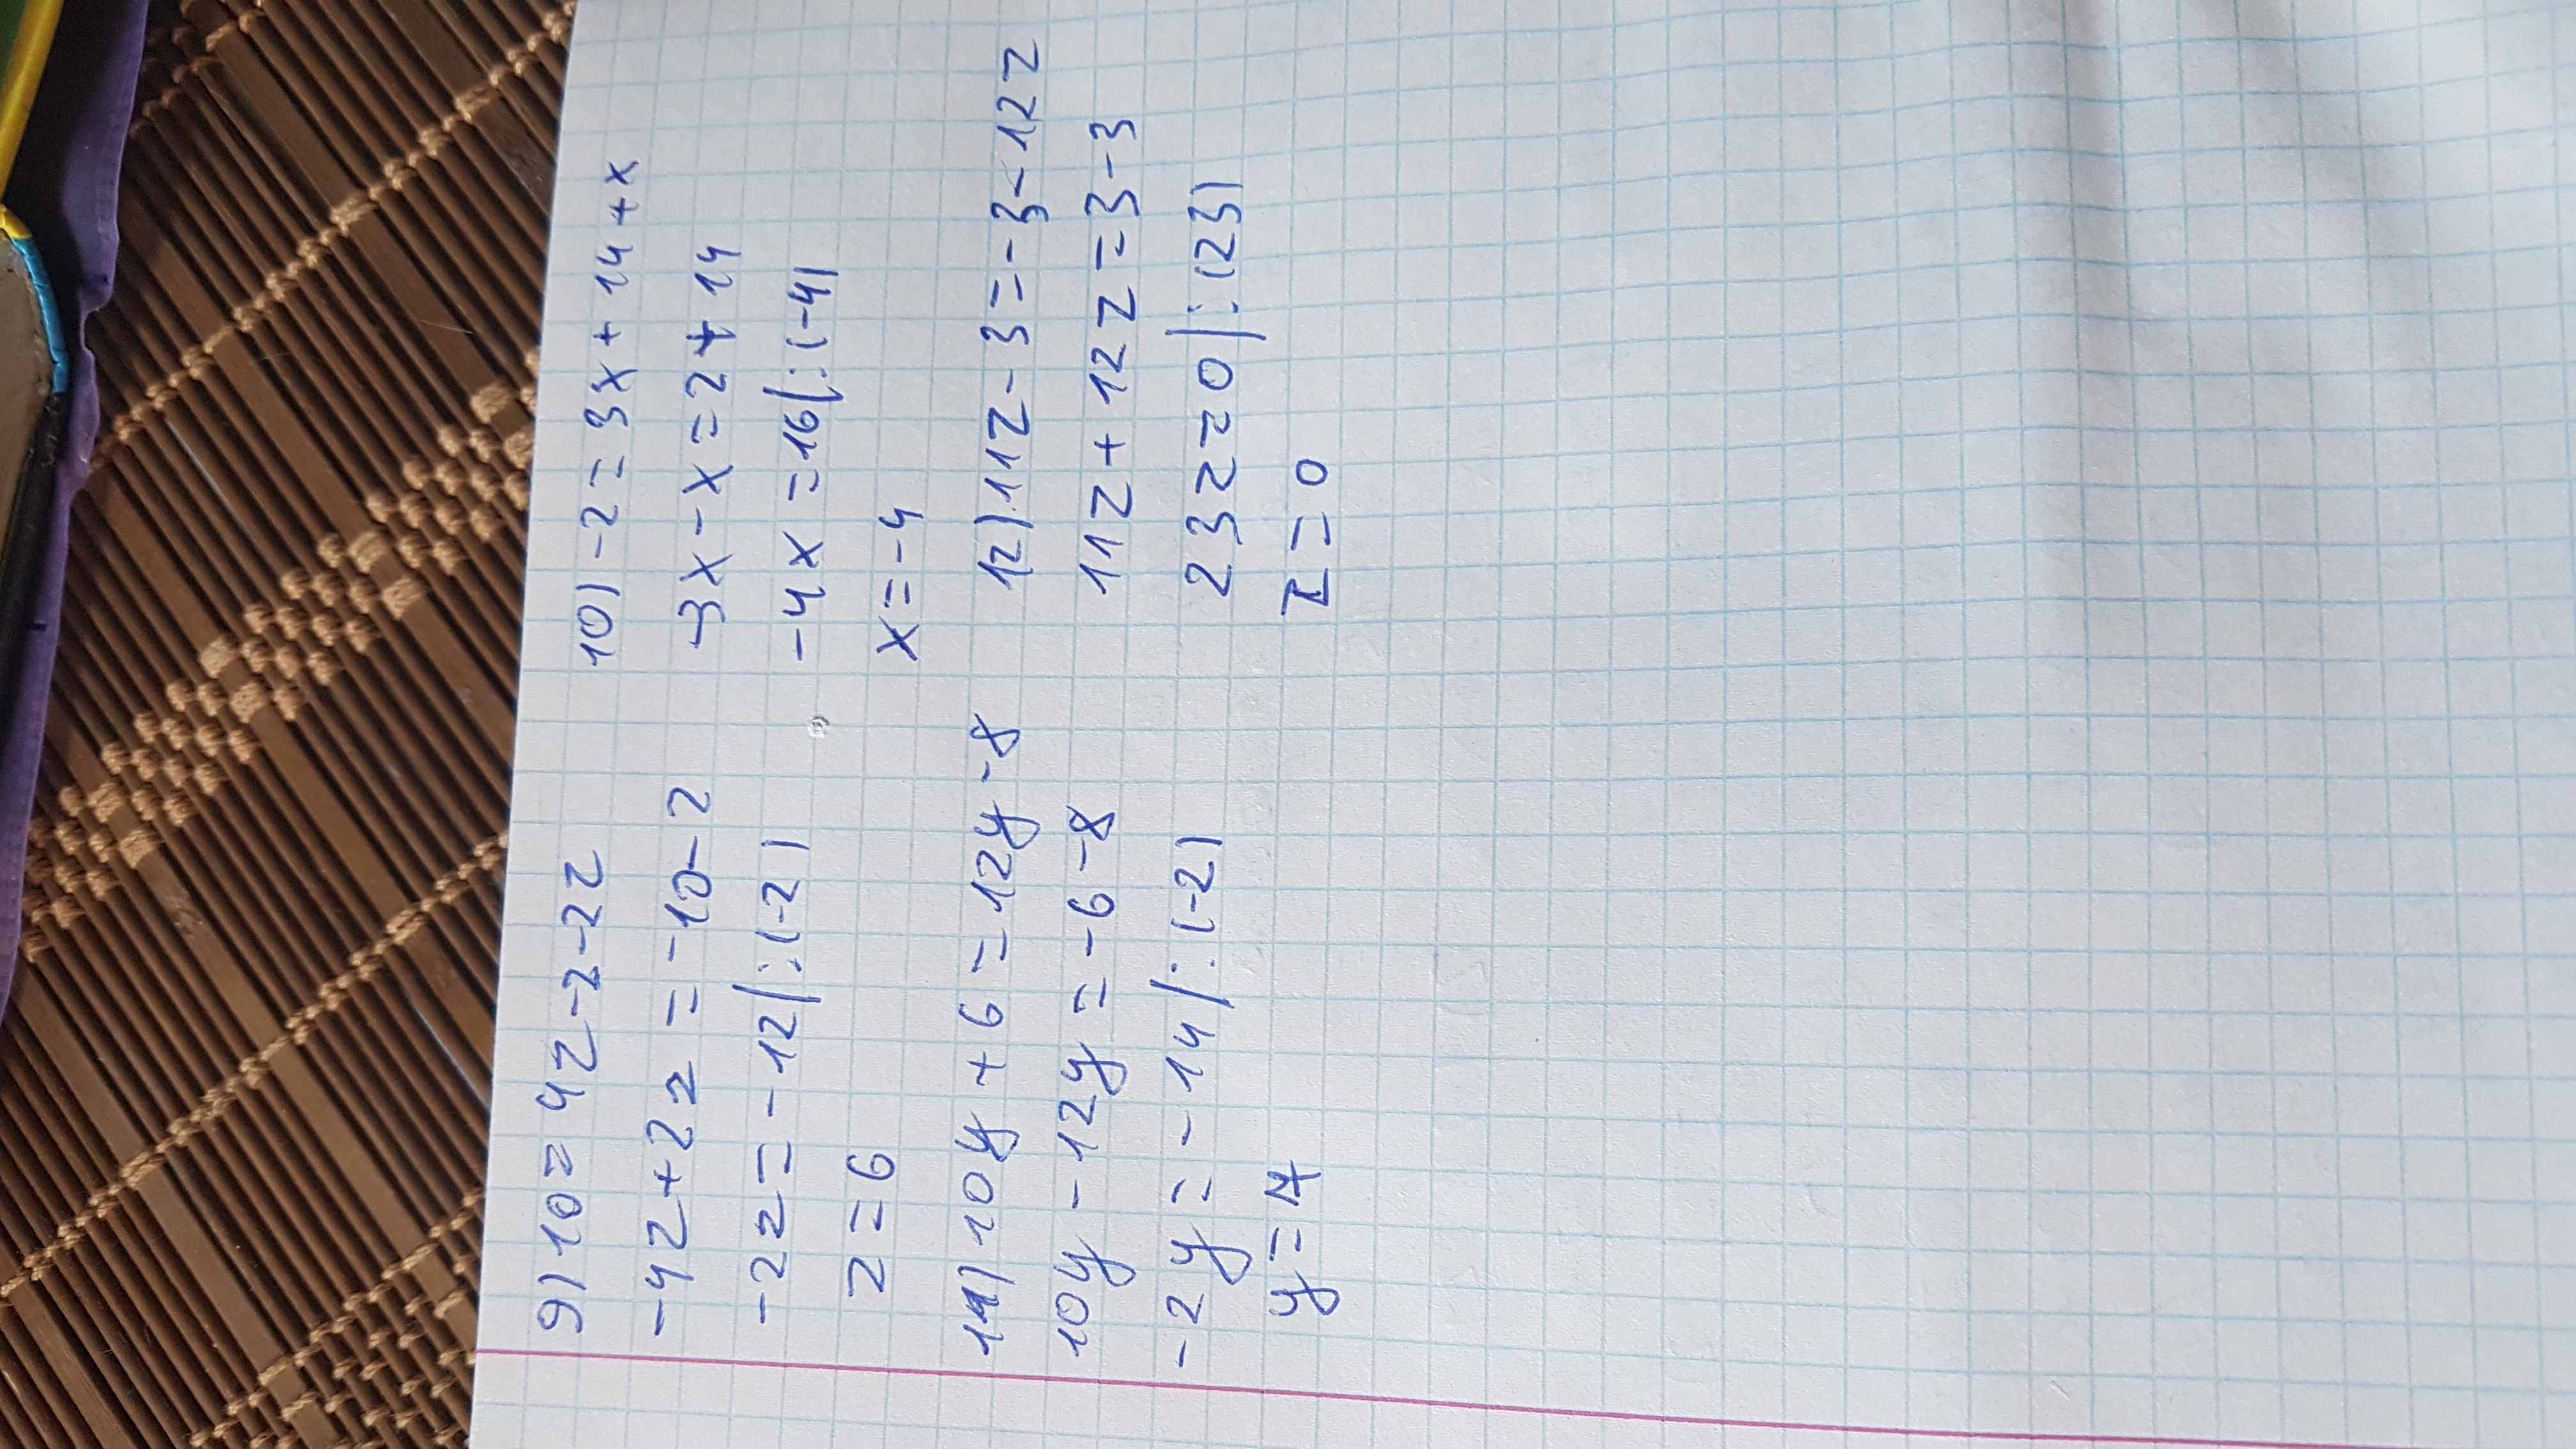 9) 10=4z-2-2z
-4z+2z=-10-2
-2z=-12/:(-2)
z=6
10) -2=3x+14+x
-3x-x=2+14
-4x=16/:(-4)
x=-4
11) 10y+6=12y-8
10y-12y=-6-8
-2y=-14/:(-2)
y=7
12) 11z-3=-3-12z
11z+12z=3-3
23z=0/:(23)
z=0